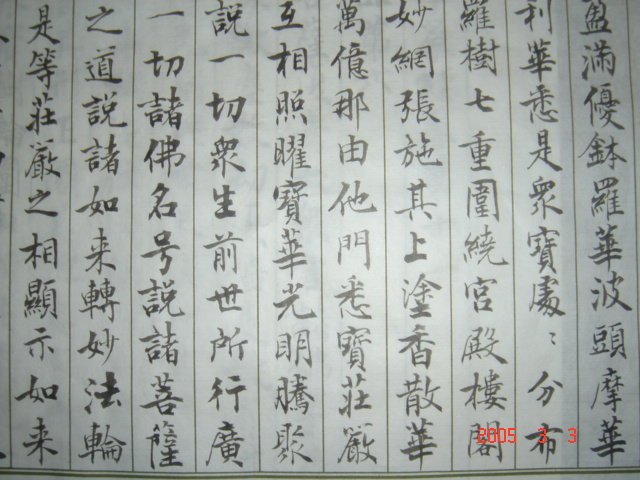 盈滿優鉢羅華波頭摩華
利華悉是衆寶處〻分布
羅樹七重圍繞宮殿樓閣
妙網張施其上塗香散華
萬億那由他門悉寶莊嚴
互相照曜寶華光明騰聚
說一切衆生前世所行廣
一切諸佛名号說諸菩薩
之道説諸如来轉妙法輪
是等莊嚴之相顯示如来
2005 3 3